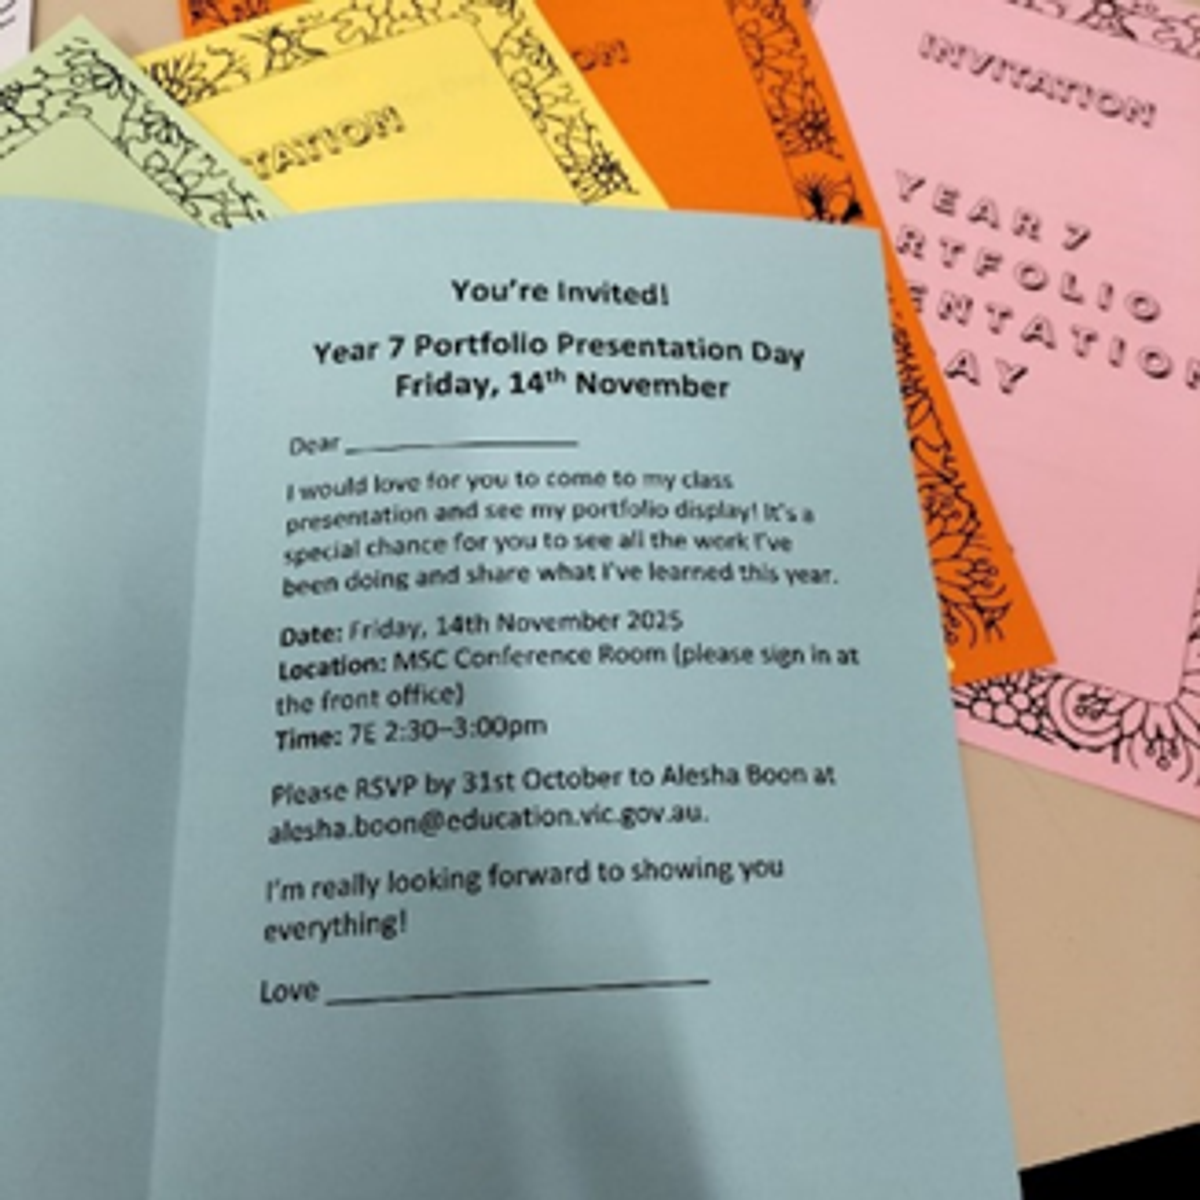 TATION
ON
INVITATION
YEAR 7
RTFOLIO
ENTATION
AY
You're Invited!
Year 7 Portfolio Presentation Day
Friday, 14th November
Dear _______________
I would love for you to come to my class
presentation and see my portfolio display! It's a
special chance for you to see all the work I've
been doing and share what I've learned this year.
Date: Friday, 14th November 2025
Location: MSC Conference Room (please sign in at
the front office)
Time: 7E 2:30–3:00pm
Please RSVP by 31st October to Alesha Boon at
alesha.boon@education.vic.gov.au.
I'm really looking forward to showing you
everything!
Love _______________